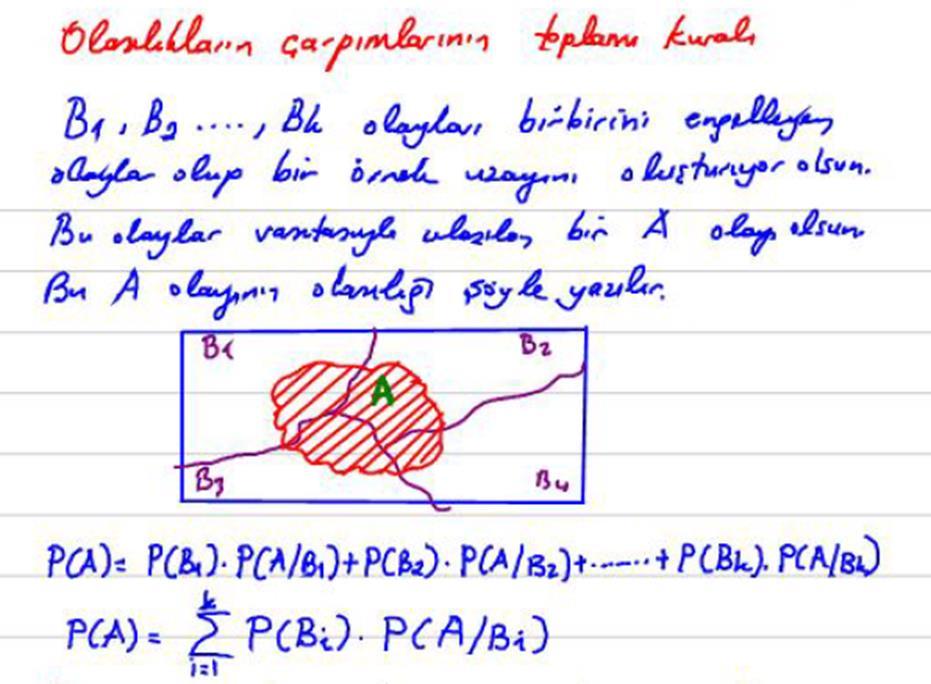 Olasılıkların çarpımlarının toplamı kuralı
B1, B2 ...., Bk olayları birbirini engelleyen
olaylar olup bir örnek uzayını oluşturuyor olsun.
Bu olaylar vasıtasıyla ulaşılan bir A olayı olsun.
Bu A olayının olasılığı şöyle yazılır.
B1 B2
A
B3 B4
P(A)= P(B1). P(A/B1)+P(B2). P(A/B2)+......+ P(Bk). P(A/Bk)
P(A) = k∑i=1 P(Bi). P(A/Bi)